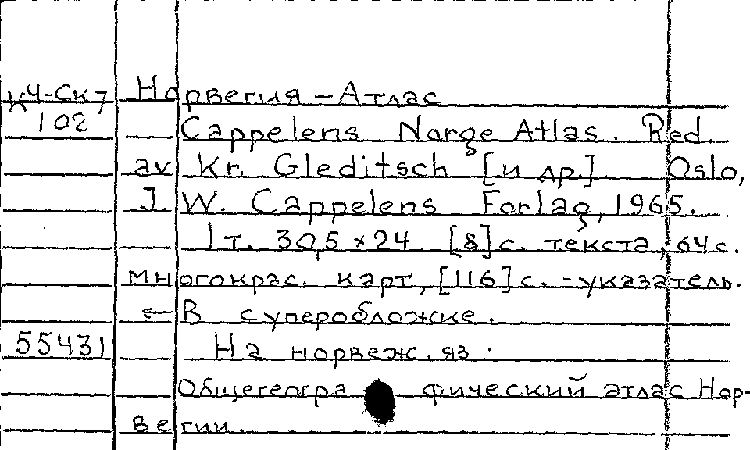 К4-СК7 Норвегия – Атлас
102 Cappelens Norge Atlas. Red.
av Kr. Gleditsch [и др] Oslo,
J. W. Cappelens Forlag, 1965.
1 т. 30,5 × 24 [8] с. текста, 64 с.
многокрас. карт, [116] с. - указатель.
← В суперобложке.
55431 На норвеж. яз.
Общегеографический атлас Нор-
вегии.